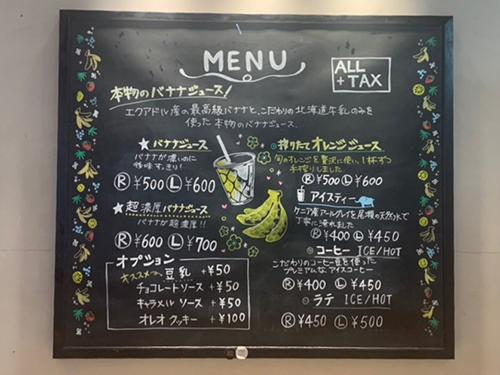 MENU
ALL
+ TAX
本物のバナナジュース!
エクアドル産の最高級バナナと、こだわりの北海道牛乳のみを
使った本物のバナナジュース.
★ バナナジュース
バナナが濃いのに
後味すっきり!
Ⓡ ¥500 Ⓛ ¥600
★ 超濃厚バナナジュース
バナナが超濃厚!!
Ⓡ ¥600 Ⓛ ¥700
オプション
オススメ 豆乳 +¥50
チョコレートソース +¥50
キャラメルソース +¥50
オレオクッキー +¥100
搾りたてオレンジジュース
旬のオレンジを贅沢に使い、1杯ずつ
手搾りしました
Ⓡ ¥500 Ⓛ ¥600
アイスティー
ケニア産アールグレイを尾瀬の天然水で
丁寧に淹れました
Ⓡ ¥400 Ⓛ ¥450
コーヒー ICE/HOT
こだわりのコーヒー豆を使った
プレミアムなアイスコーヒー
Ⓡ ¥400 Ⓛ ¥450
ラテ ICE/HOT
Ⓡ ¥450 Ⓛ ¥500